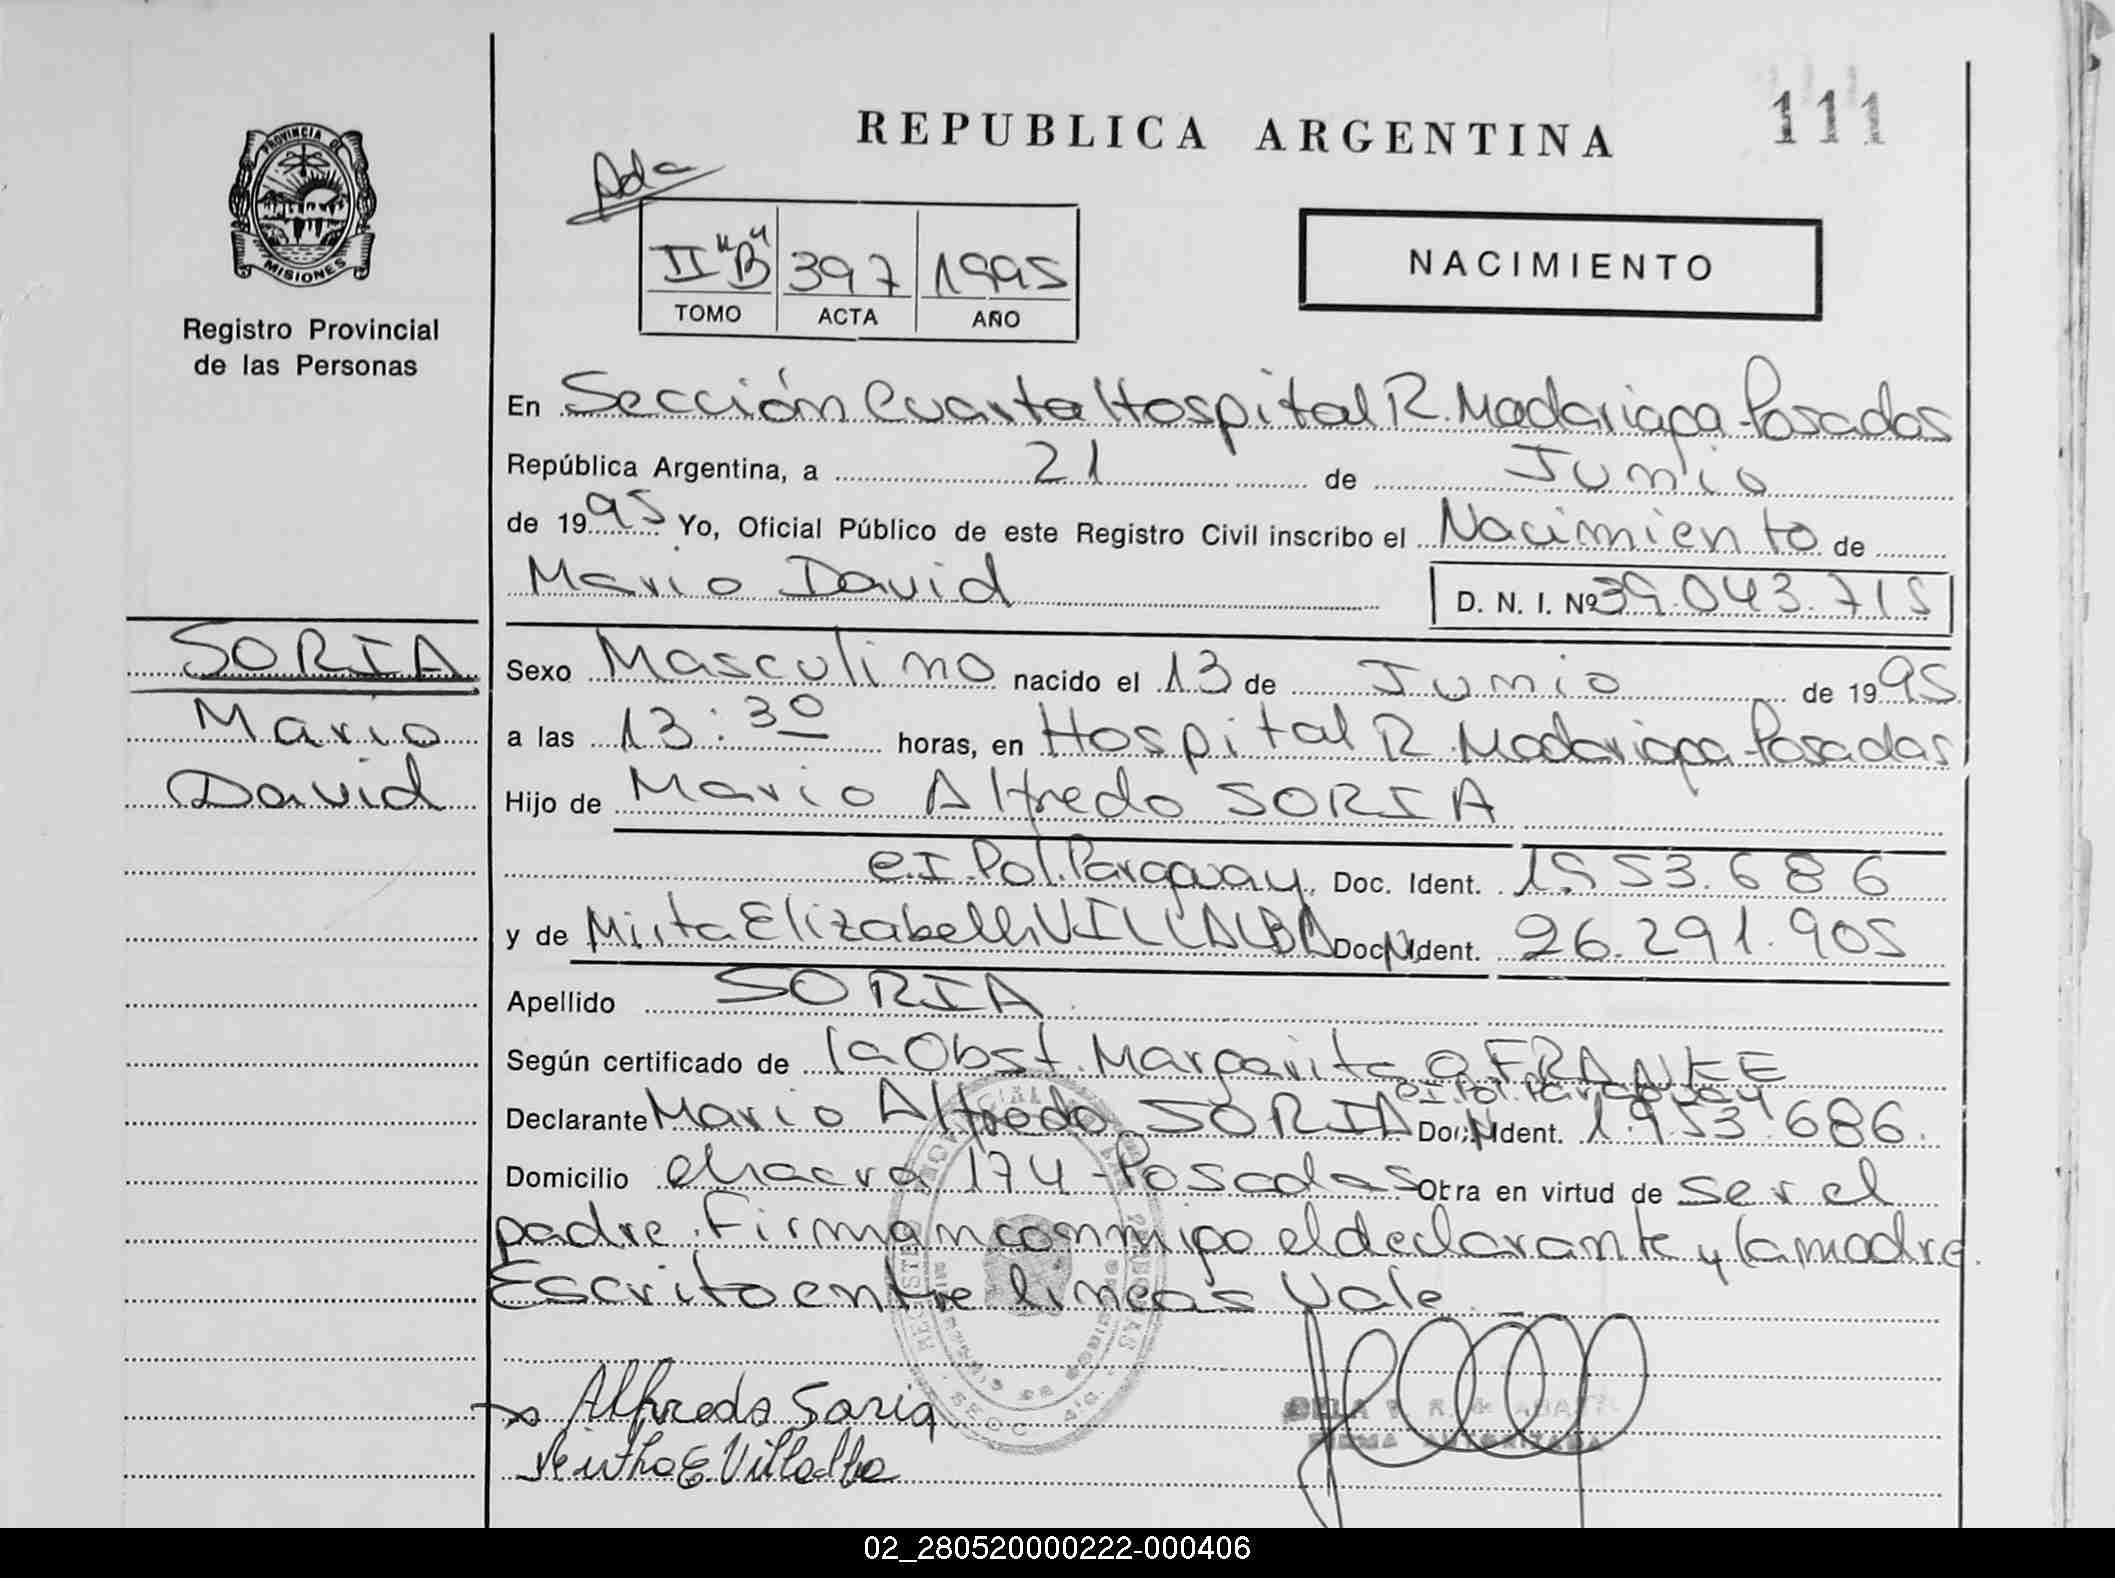 REPUBLICA ARGENTINA
111
PROVINCIA DE
MISIONES
Registro Provincial
de las Personas
II "B" 397 1995
TOMO ACTA AÑO
NACIMIENTO
En Sección Cuarta Hospital R. Madariaga - Posadas
República Argentina, a 21 de Junio
de 1995 Yo, Oficial Público de este Registro Civil inscribo el Nacimiento de
Mario David D. N. I. Nº 39.043.715
SORIA
Mario
David
Sexo Masculino nacido el 13 de Junio de 1995
a las 13:30 horas, en Hospital R. Madariaga - Posadas
Hijo de Mario Alfredo SORIA
C.I. Pol. Paraguay Doc. Ident. 1953.686
y de Mirta Elizabeth VILLALBA Doc. Ident. 26.291.905
Apellido SORIA
Según certificado de la Obst. Margarita G FRANKE
C.I. Pol. Paraguay
Declarante Mario Alfredo SORIA Doc. Ident. 1.953.686
Domicilio chacra 174 - Posadas Obra en virtud de ser el
padre. Firman conmigo el declarante y la madre.
Escrito entre líneas Vale
Alfredo Soria
Mirtha E. Villalba
FIRMA AUTORIZADA
02_280520000222-000406